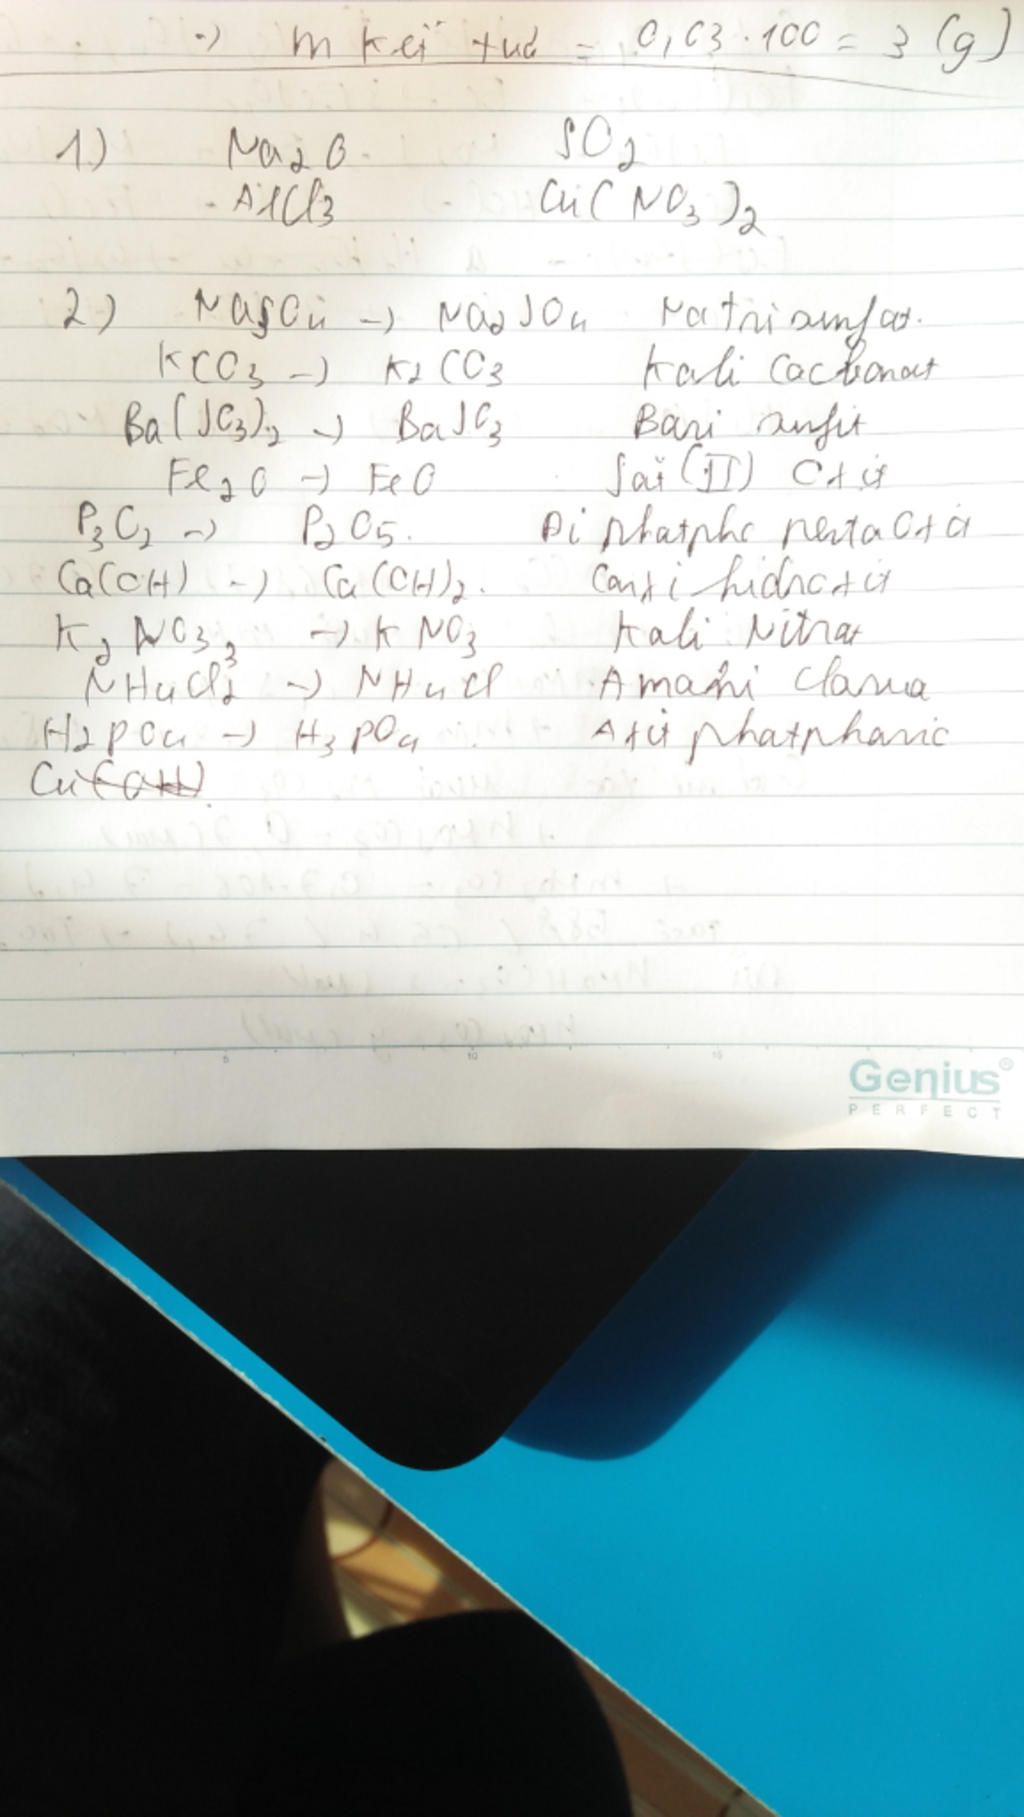 => m kết tủa = 0,03.100 = 3 (g)
1.) Na2O. SO2
AlCl3 Cu(NO3)2
2.) NaSO4 -> Na2SO4 Natri sunfat.
KCO3 -> K2CO3 Kali cacbonat
Ba(SO3)2 -> BaSO3 Bari sunfit
Fe2O -> FeO Sắt (II) Oxit
P3O2 -> P2O5. Đi phatpho pentaOxit
Ca(OH) -> Ca(OH)2. Canxi hidroxit
K2NO3 -> KNO3 Kali Nitrat
NH4Cl2 -> NH4Cl Amoni Clorua
H2PO4 -> H3PO4 Axit photphoric
Cu(OH)
5 10 15
Genius®
PERFECT